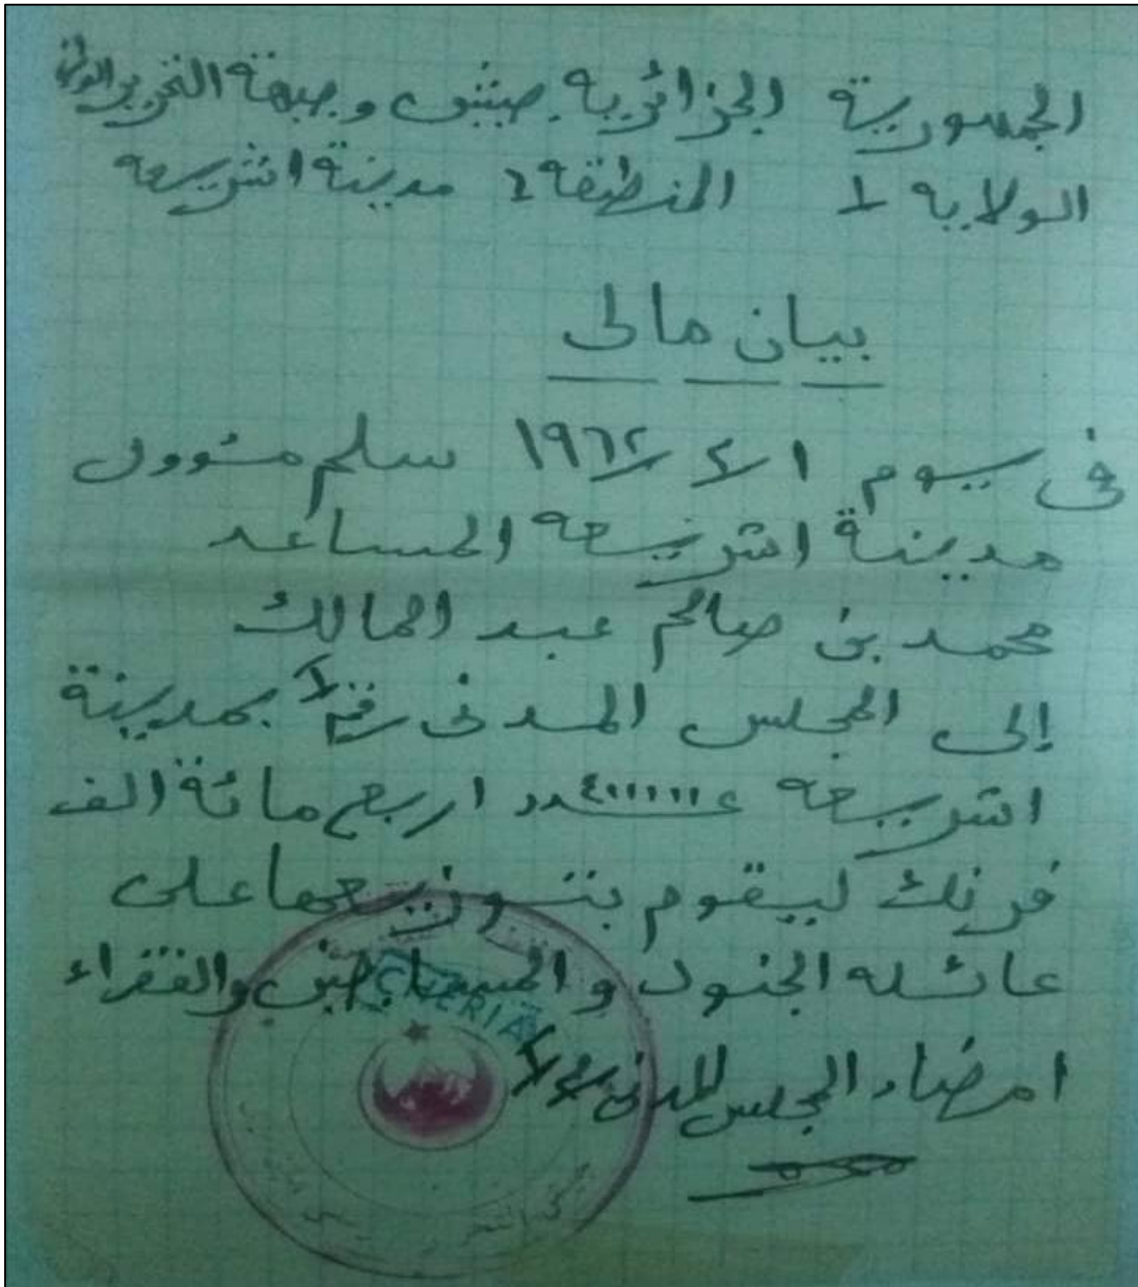 الجمهورية الجزائريه جيش و جبهة التحرير الوطنى
الولايه 1 المنطقه 2 مدينة اشريعه
بيان مالى
فى يوم ١ / ٤ / ١٩٦٢ سلم مسؤول
مدينة اشريعه المساعد
محمد بن صالح عبد المالك
إلى المجلس المدنى رقم 1 بمدينة
اشريعه عدد اربع مائة الف
فرنك ليقوم بتوزيعها على
عائله الجنود و المساجين والفقراء
امضاء المجلس المدنى